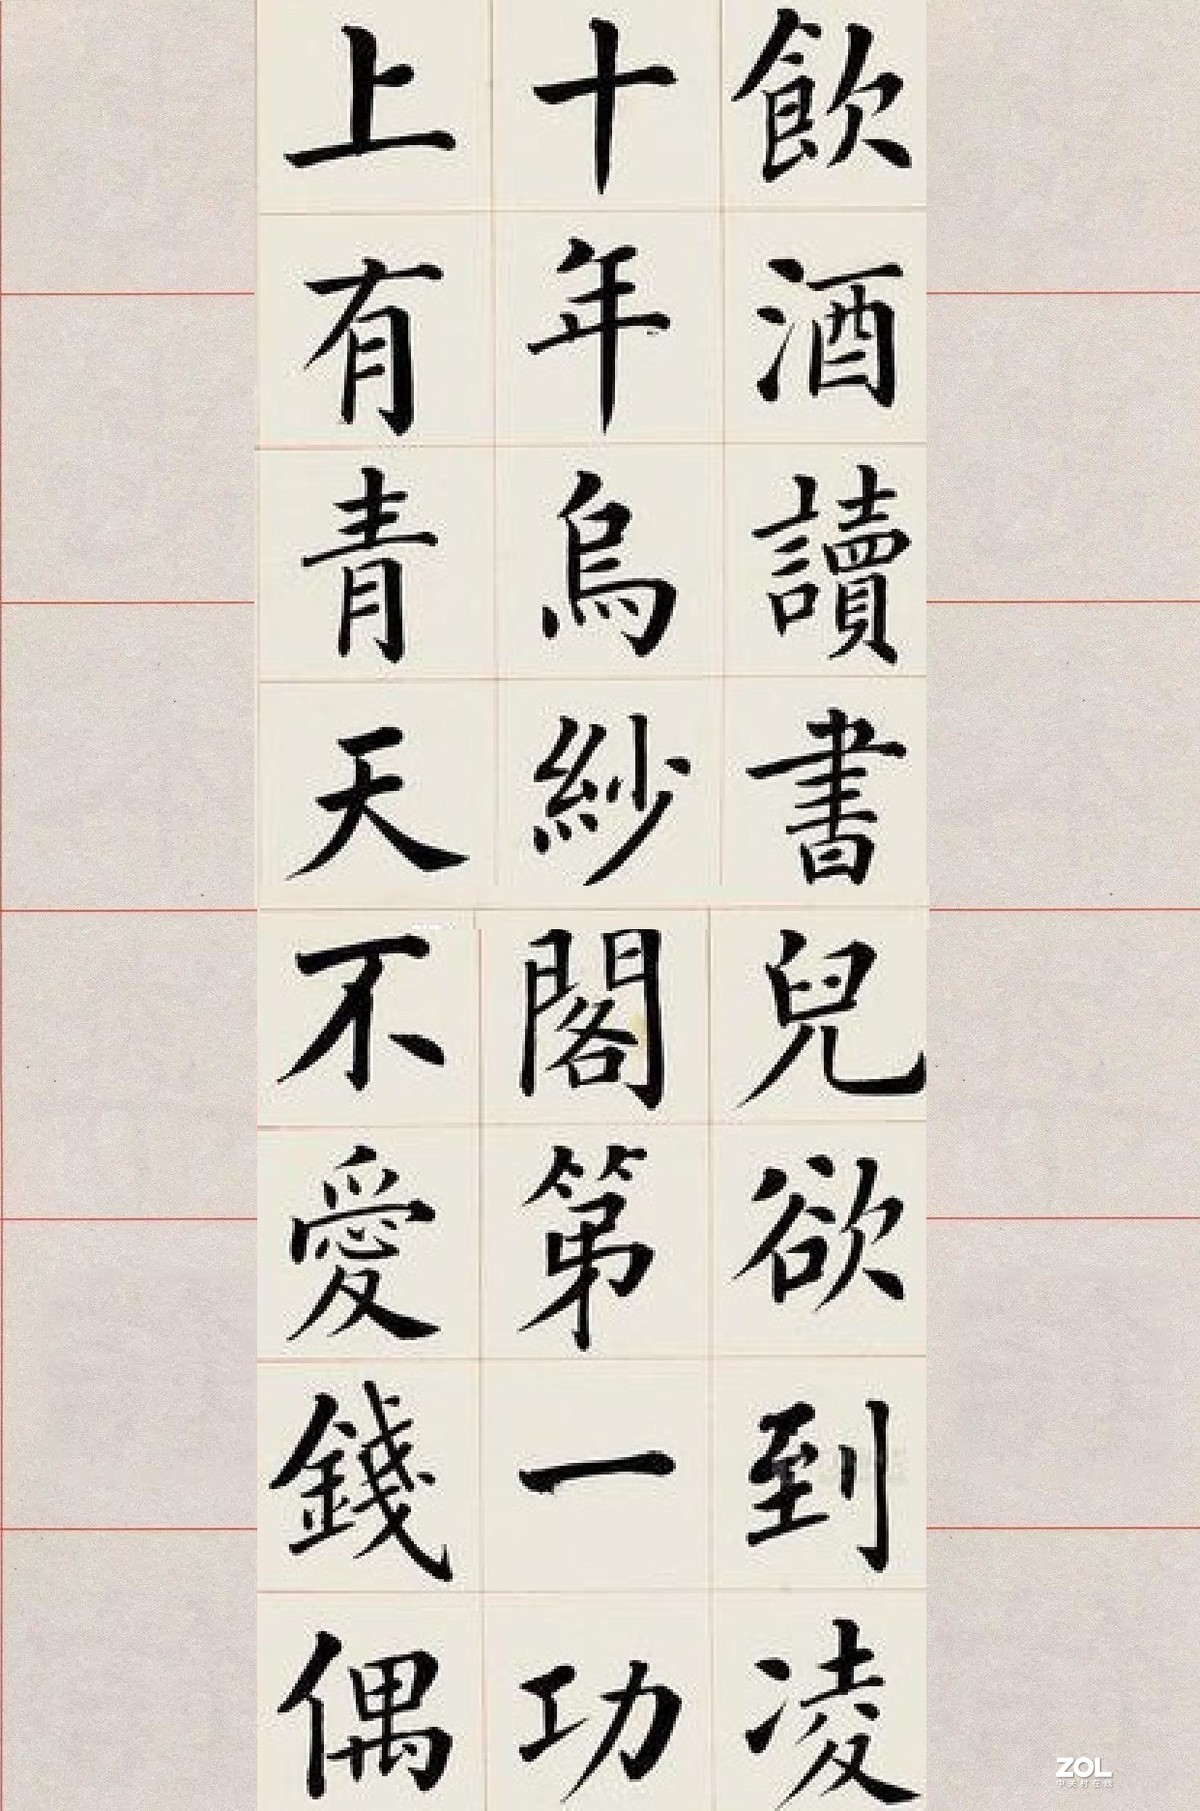 飲酒讀書兒欲到凌
十年烏紗閣第一功
上有青天不愛錢偶
ZOL
中关村在线